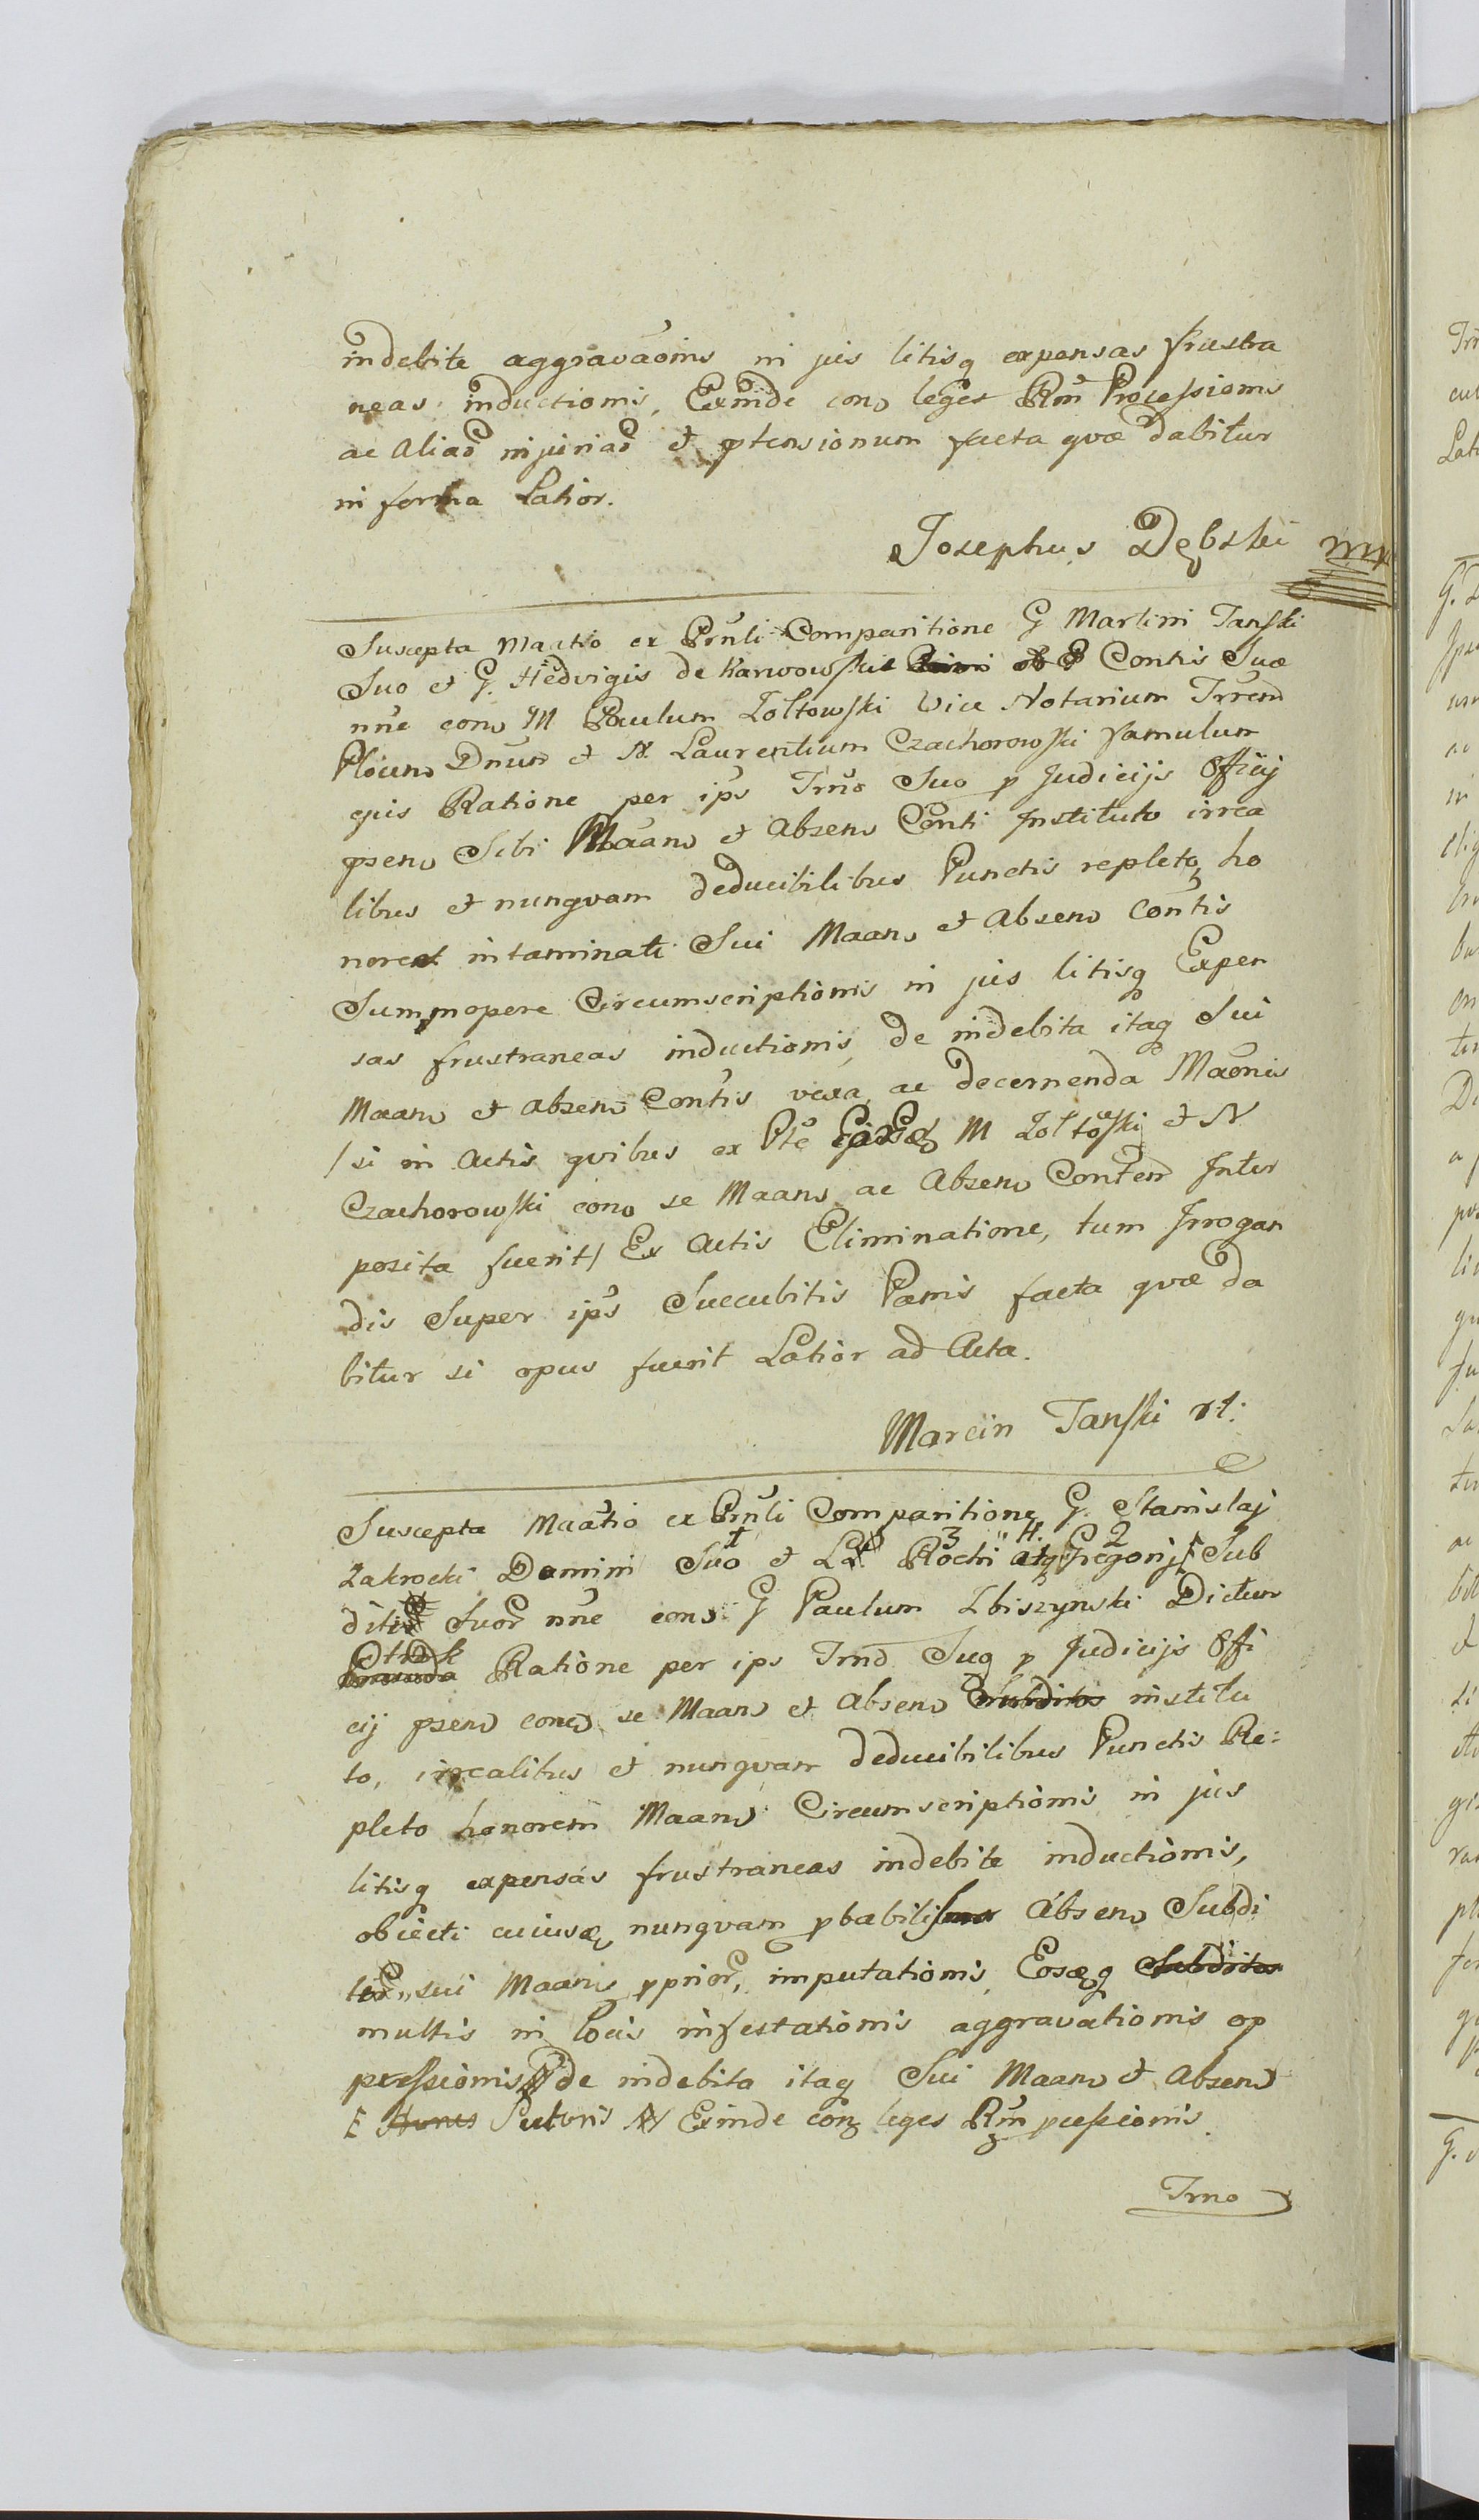 indebite aggravaõins in jus litisq expensas frustra
neas inductionis, Exinde con leges Rm̃ Processionis
ac aliar̃ injuriar̃ et ptensionum facta qvæ dabitur
in forma Latior.
Josephus Dębski mp
Suscepta Maãtio ex Prñli Comparitione G Martini Tanski
Suo et G. Hedvigis de Karwowskie Contis Suæ
nñe con M Paulum Zoltowski Vice Notarium Trrem
Plocen Dnũm et N. Laurentium Czachorowski famulum
ejus Ratione per ips Trño Suo p Judicijs Officij
psen Sibi Maan et Absen Conti Instituto irrea
libus et nunqvam deducibilibus Punctis repleto, ho
nore intaminati Sui Maan et Absen Contis
Summopere Circumscriptionis in jus litisq Expen
sas frustraneas inductionis, de indebita itaq Sui
Maan et absen Contis vexa, ac decernenda Maõnis
/si in Actis qvibus ex Pte M Zoltowski et N
Czachorowski con se Maan ac Absen Contem Inter
posita fuerit/ Ex Actis Eliminatione, tum Irrogan
dis Super ips Succubitis Pænis facta qvæ da
bitur si opus fuerit Latior ad Acta.
Marcin Tanski
Suscepta Maãtio ex Prñli Comparitione G. Stanislaj
Zakrocki Domini Suo et LL 1 Rochi 3 atq 4. Gregorij 2 Sub
ditor Suor nñe con G Paulum Zbiszynski Dictum
Ratione per ips Trnõ Suo p Judicijs Offi
cij psen con se Maan et Absen Subditos institu
to, irrealibus et nunqvam deducibilibus Punctis Re:
pleto honorem Maan Circumscriptionis in jus
litisq expensas frustraneas indebite inductionis,
objecti nunqvam pbabilis Absen Subdi
tor sui Maan pprior, imputationis, Eosq Subditos
multis in locis infestationis aggravationis op
pressionis de indebita itaq Sui Maan et Absen
Exinde con leges Rm̃ pcessionis.
Trno